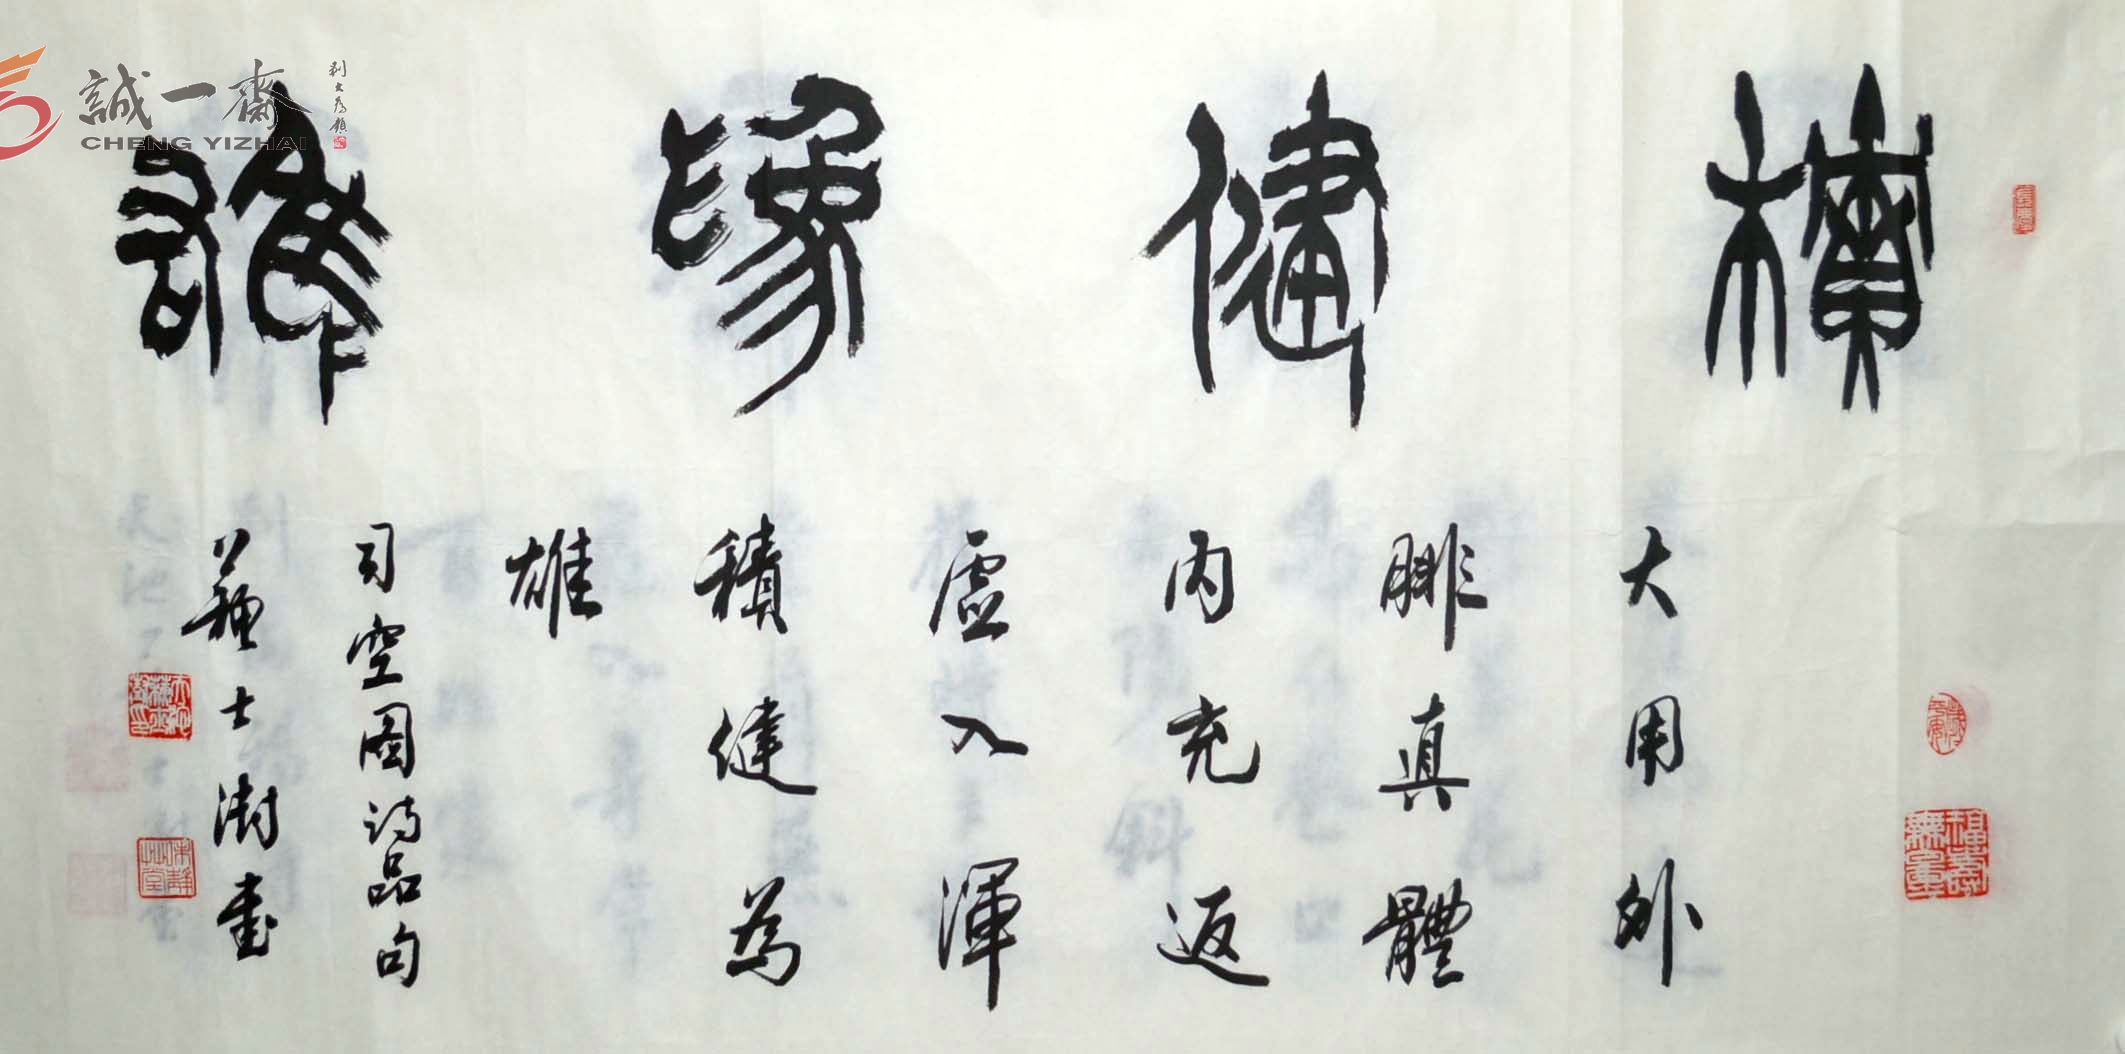 積健為雄
大用外
腓真體
內充返
虛入渾
積健為
雄
司空圖詩品句
蘇士澍書
誠一齋
CHENG YIZHAI